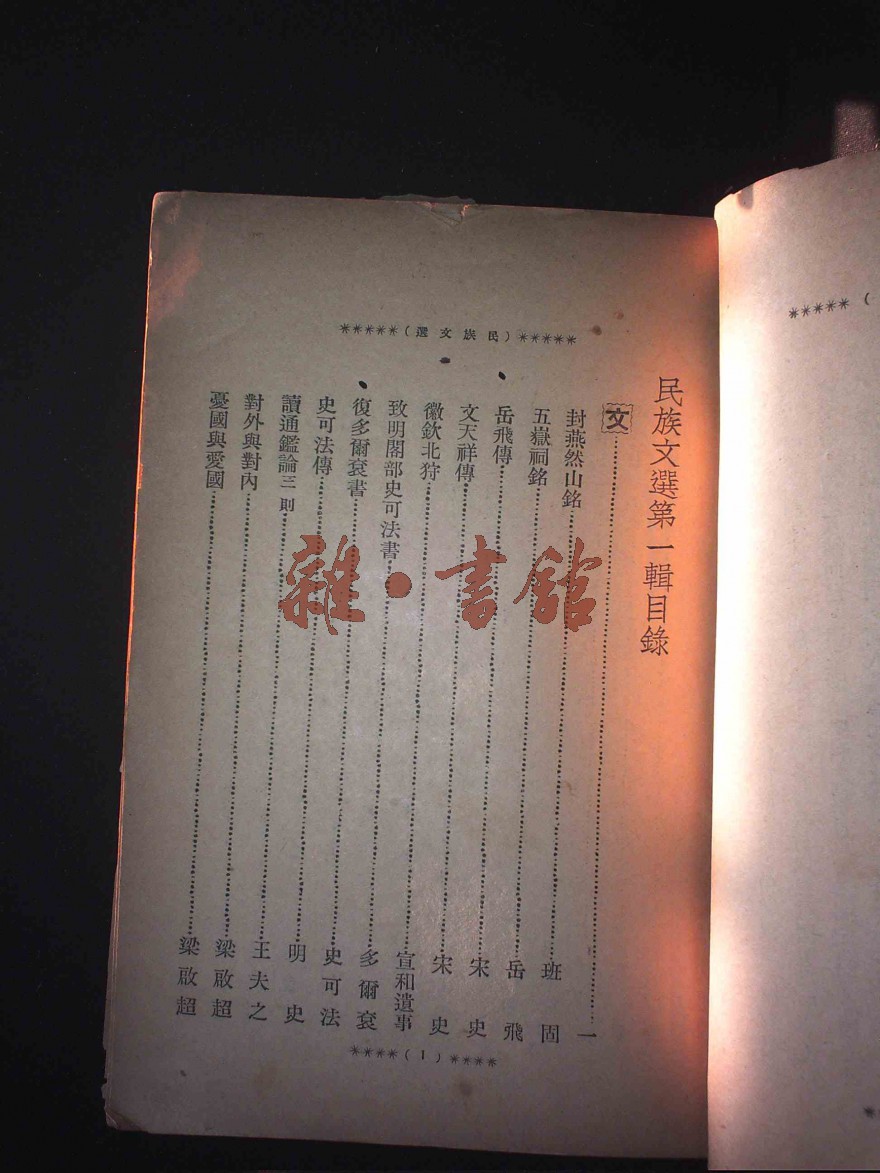 *****（民族文選）*****
民族文選第一輯目錄
文……一
封燕然山銘……班固
五嶽祠銘……岳飛
岳飛傳……宋史
文天祥傳……宋史
徽欽北狩……宣和遺事
致明閣部史可法書……多爾袞
復多爾袞書……史可法
史可法傳……明史
讀通鑑論三則……王夫之
對外與對內……梁啟超
憂國與愛國……梁啟超
****（1）****
*****（
雜·書館